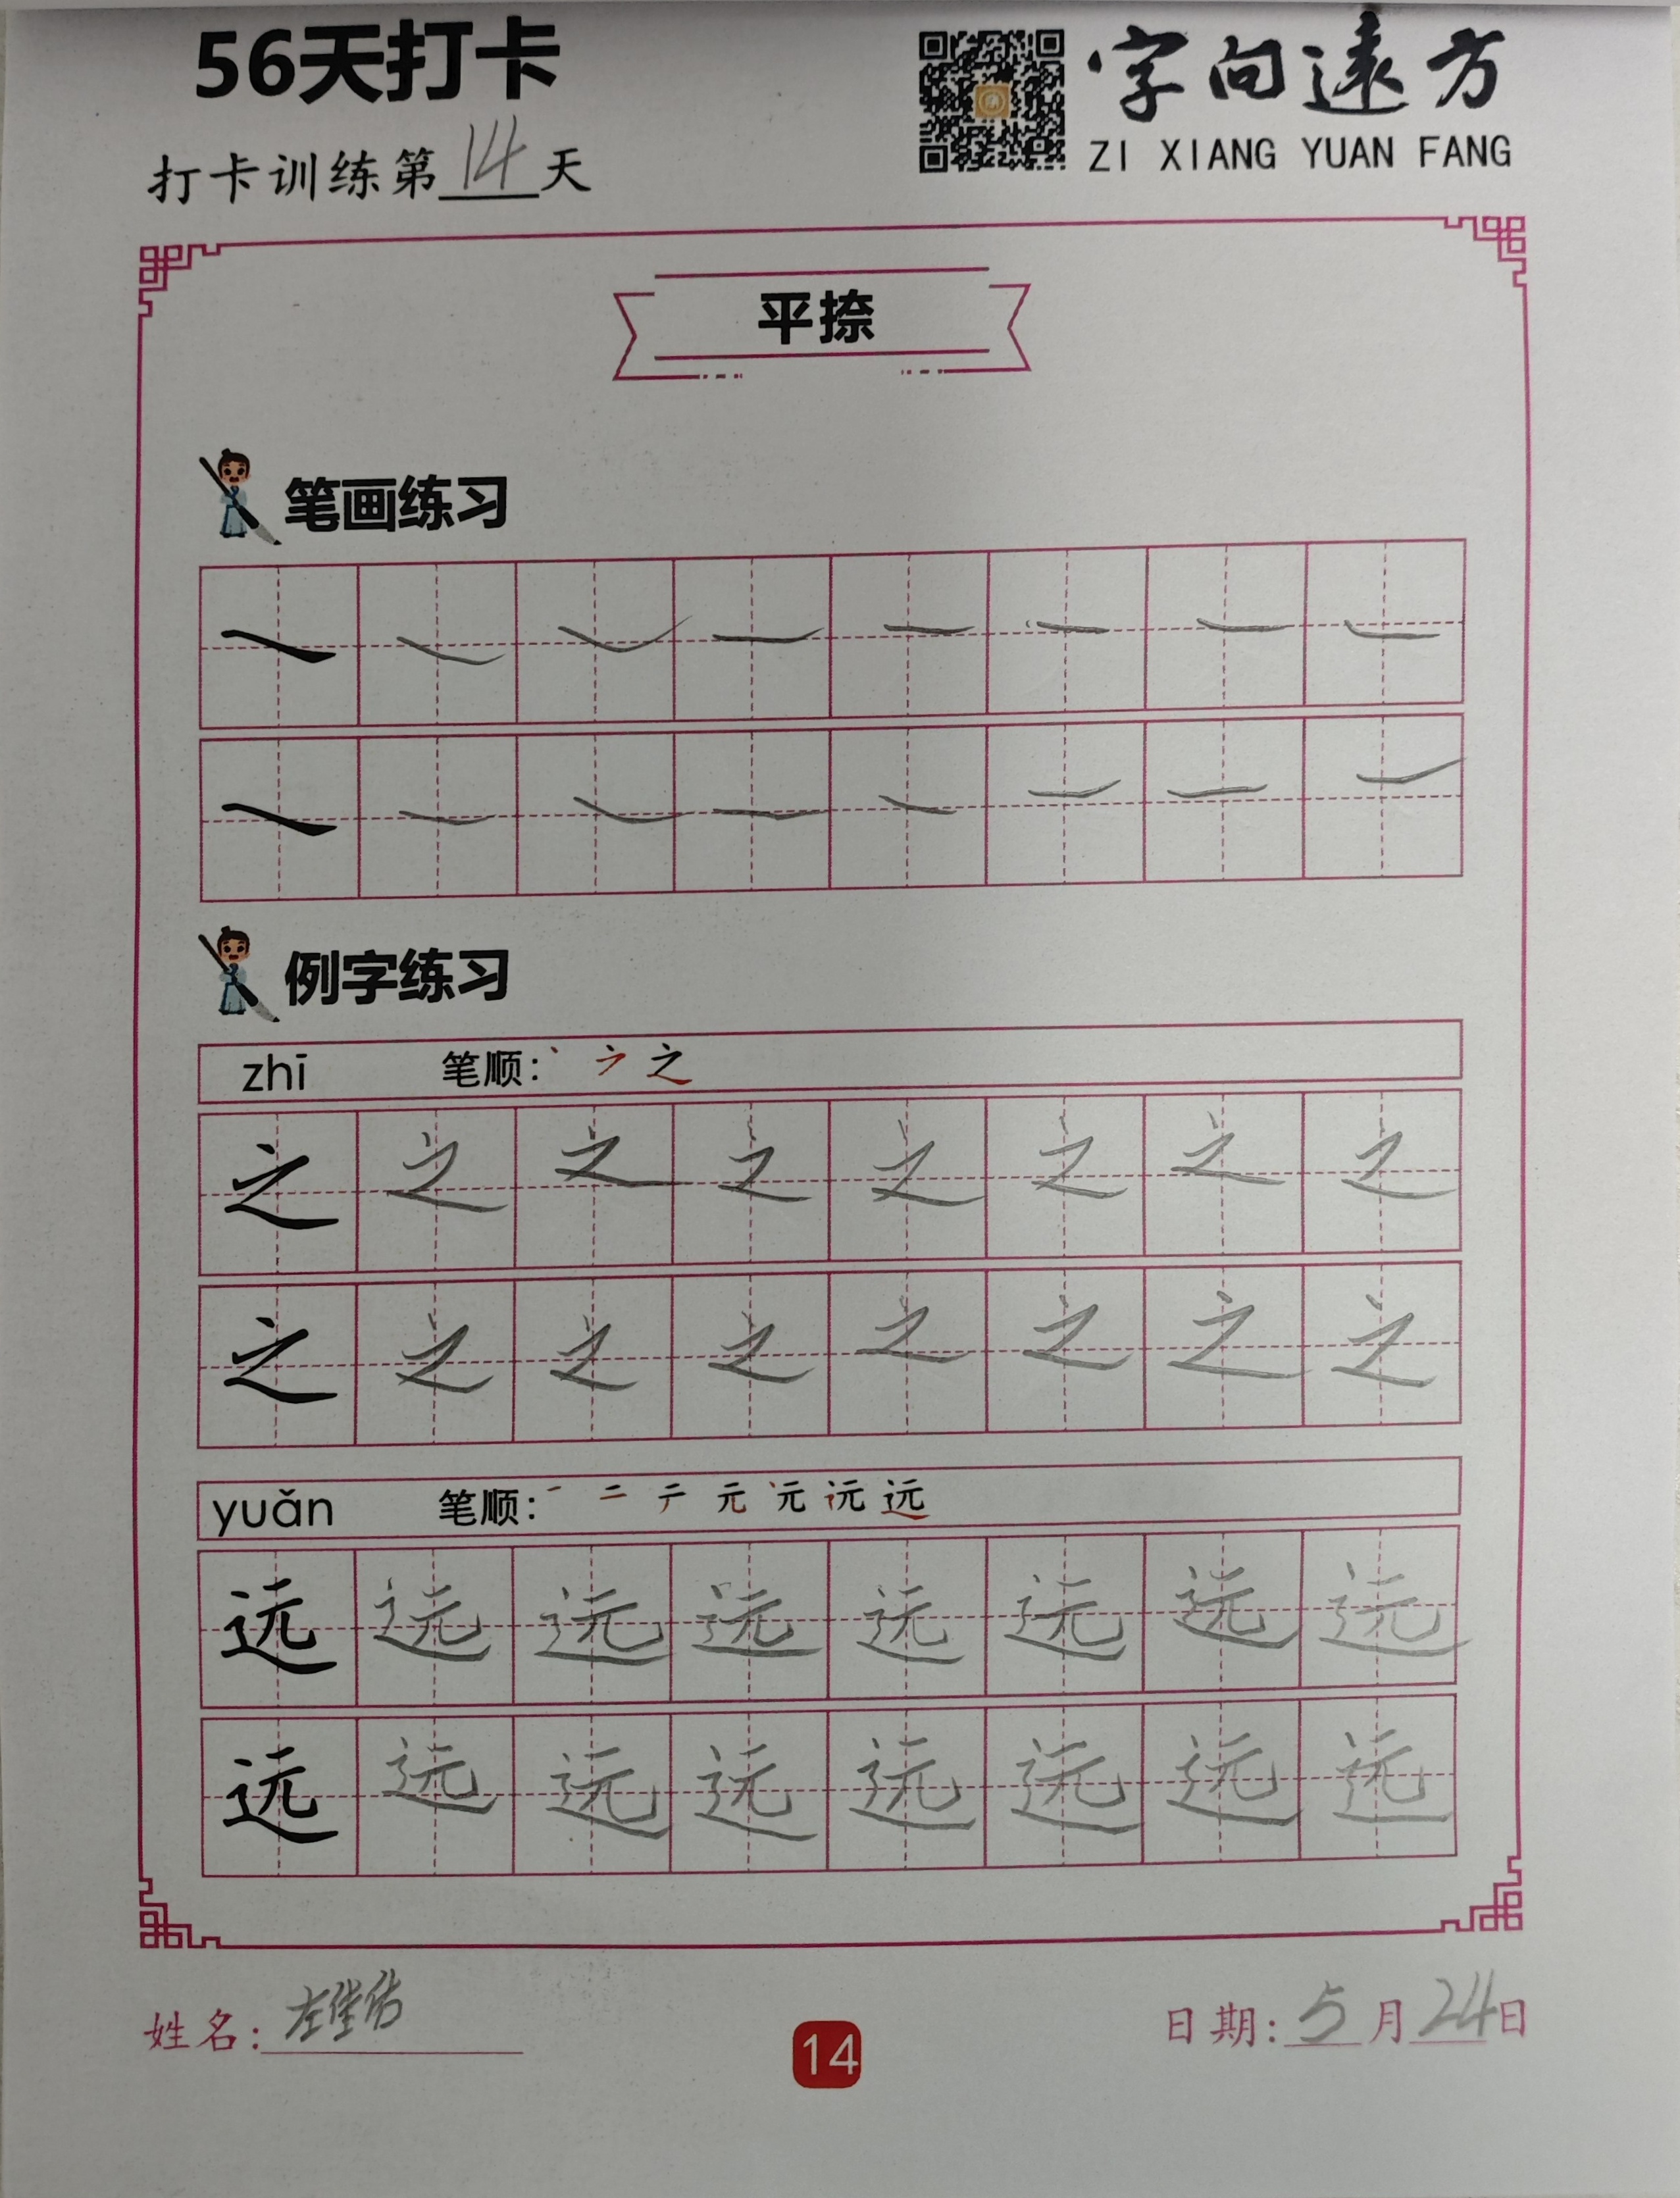 56天打卡
字向遠方
ZI XIANG YUAN FANG
打卡训练第14天
平捺
笔画练习
例字练习
zhī 笔顺: 丶 之
之 之 之 之 之 之 之 之
之 之 之 之 之 之 之 之
yuǎn 笔顺: 一 二 元 远
远 远 远 远 远 远 远 远
远 远 远 远 远 远 远 远
姓名:
14
日期: 5月24日